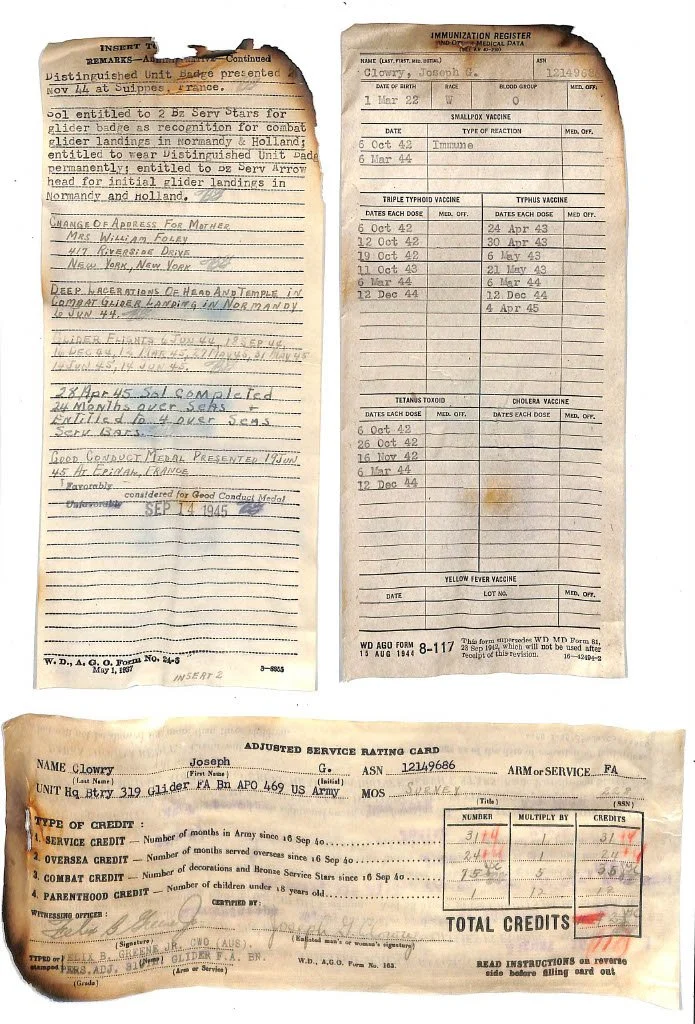 INSERT TO
REMARKS—Administrative—Continued
Distinguished Unit Badge presented
Nov 44 at Suippes, France.
Sol entitled to 2 Bz Serv Stars for
glider badge as recognition for combat
glider landings in Normandy & Holland;
entitled to wear Distinguished Unit Badg
permanently; entitled to Bz Serv Arrow
head for initial glider landings in
Normandy and Holland.
CHANGE OF ADDRESS FOR MOTHER
MRS. WILLIAM FOLEY
417 RIVERSIDE DRIVE
NEW YORK, NEW YORK
DEEP LACERATIONS OF HEAD AND TEMPLE IN
COMBAT GLIDER LANDING IN NORMANDY
6 JUN 44.
GLIDER FLIGHTS 6 JUN 44, 18 SEP 44,
16 DEC 44, 12 MAR 45, 27 MAY 45, 31 MAY 45
14 JUN 45, 14 JUN 45.
28 Apr 45 Sol Completed
24 Months over Seas +
Entitled to 4 over Seas
Serv Bars.
GOOD CONDUCT MEDAL PRESENTED 19 JUN
45 AT EPINAL, FRANCE
Favorably
Unfavorably considered for Good Conduct Medal
SEP 14 1945
W. D., A. G. O. Form No. 24-5
May 1, 1937
3—8955
INSERT 2
IMMUNIZATION REGISTER
AND OTHER MEDICAL DATA
NAME (LAST, FIRST, MID. INITIAL) ASN
Clowry, Joseph G. 1214968
DATE OF BIRTH RACE BLOOD GROUP MED. OFF.
1 Mar 22 W O
SMALLPOX VACCINE
DATE TYPE OF REACTION MED. OFF.
6 Oct 42 Immune
6 Mar 44
TRIPLE TYPHOID VACCINE TYPHUS VACCINE
DATES EACH DOSE MED. OFF. DATES EACH DOSE MED. OFF.
6 Oct 42 24 Apr 43
12 Oct 42 30 Apr 43
19 Oct 42 6 May 43
11 Oct 43 21 May 43
6 Mar 44 6 Mar 44
12 Dec 44 12 Dec 44
4 Apr 45
TETANUS TOXOID CHOLERA VACCINE
DATES EACH DOSE MED. OFF. DATES EACH DOSE MED. OFF.
6 Oct 42
26 Oct 42
16 Nov 42
6 Mar 44
12 Dec 44
YELLOW FEVER VACCINE
DATE LOT NO. MED. OFF.
WD AGO FORM 8-117
15 AUG 1944
This form supersedes WD MD Form 81,
23 Sep 1942, which will not be used after
receipt of this revision. 16—42494-2
ADJUSTED SERVICE RATING CARD
NAME Clowry Joseph G. ASN 12149686 ARM or SERVICE FA
(Last Name) (First Name) (Initial)
UNIT Hq Btry 319 Glider FA Bn APO 469 US Army MOS SURVEY 228
(Title) (SSN)
TYPE OF CREDIT : NUMBER MULTIPLY BY CREDITS
1. SERVICE CREDIT – Number of months in Army since 16 Sep 40 31 1 31
2. OVERSEA CREDIT – Number of months served overseas since 16 Sep 40 24 1 24
3. COMBAT CREDIT – Number of decorations and Bronze Service Stars since 16 Sep 40 5
4. PARENTHOOD CREDIT – Number of children under 18 years old 12
CERTIFIED BY :
WITNESSING OFFICER :
TOTAL CREDITS
(Signature) (Enlisted man's or woman's signature)
TYPED or FELIX B. GREENE JR. CWO (AUS).
stamped PERS. ADJ. GLIDER F.A. BN.
(Name)
(Grade) (Arm or Service)
W.D., A.G.O. Form No. 163.
READ INSTRUCTIONS on reverse
side before filling card out